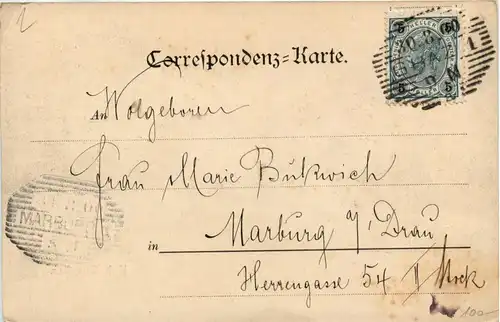 2
Correspondenz=Karte.
5 HELLER 5
5 5
An Wolgeboren
Frau Marie Bukwich
MARBURG
in Marburg a/ Drau
Herrengasse 54 II Stock
100-